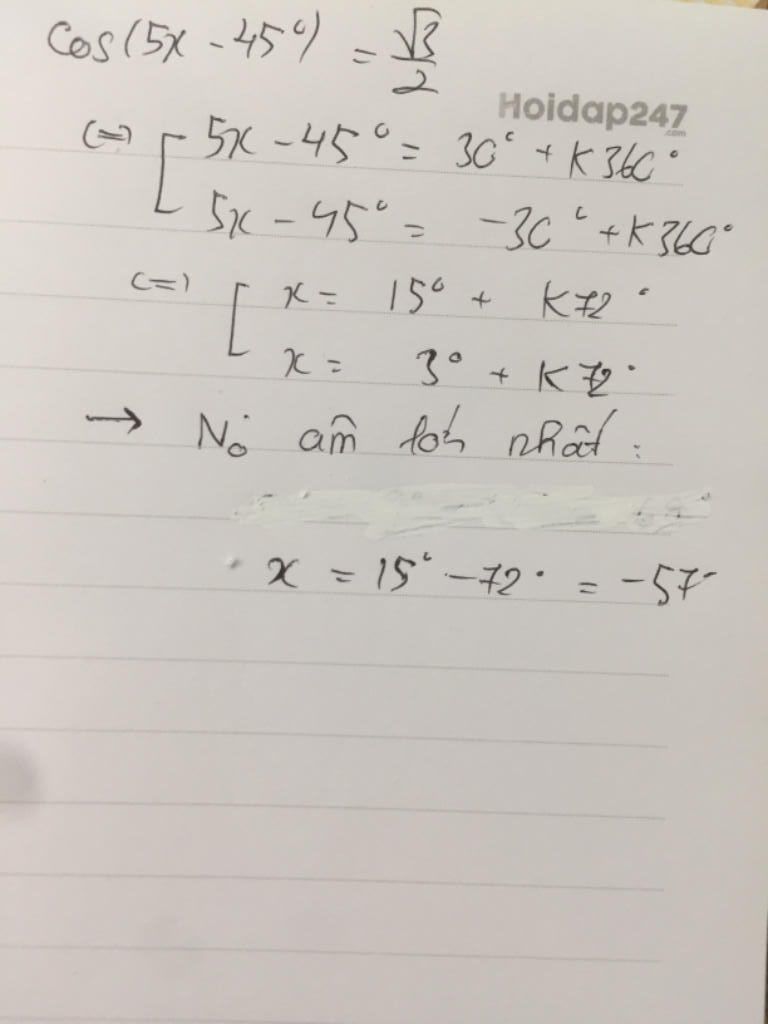 cos(5x - 45°) = √3/2
Hoidap247
.com
(=) [ 5x - 45° = 30° + K360°
5x - 45° = -30° + K360°
(=) [ x = 15° + K72°
x = 3° + K72°
→ No âm lớn nhất :
x = 15° - 72° = -57°